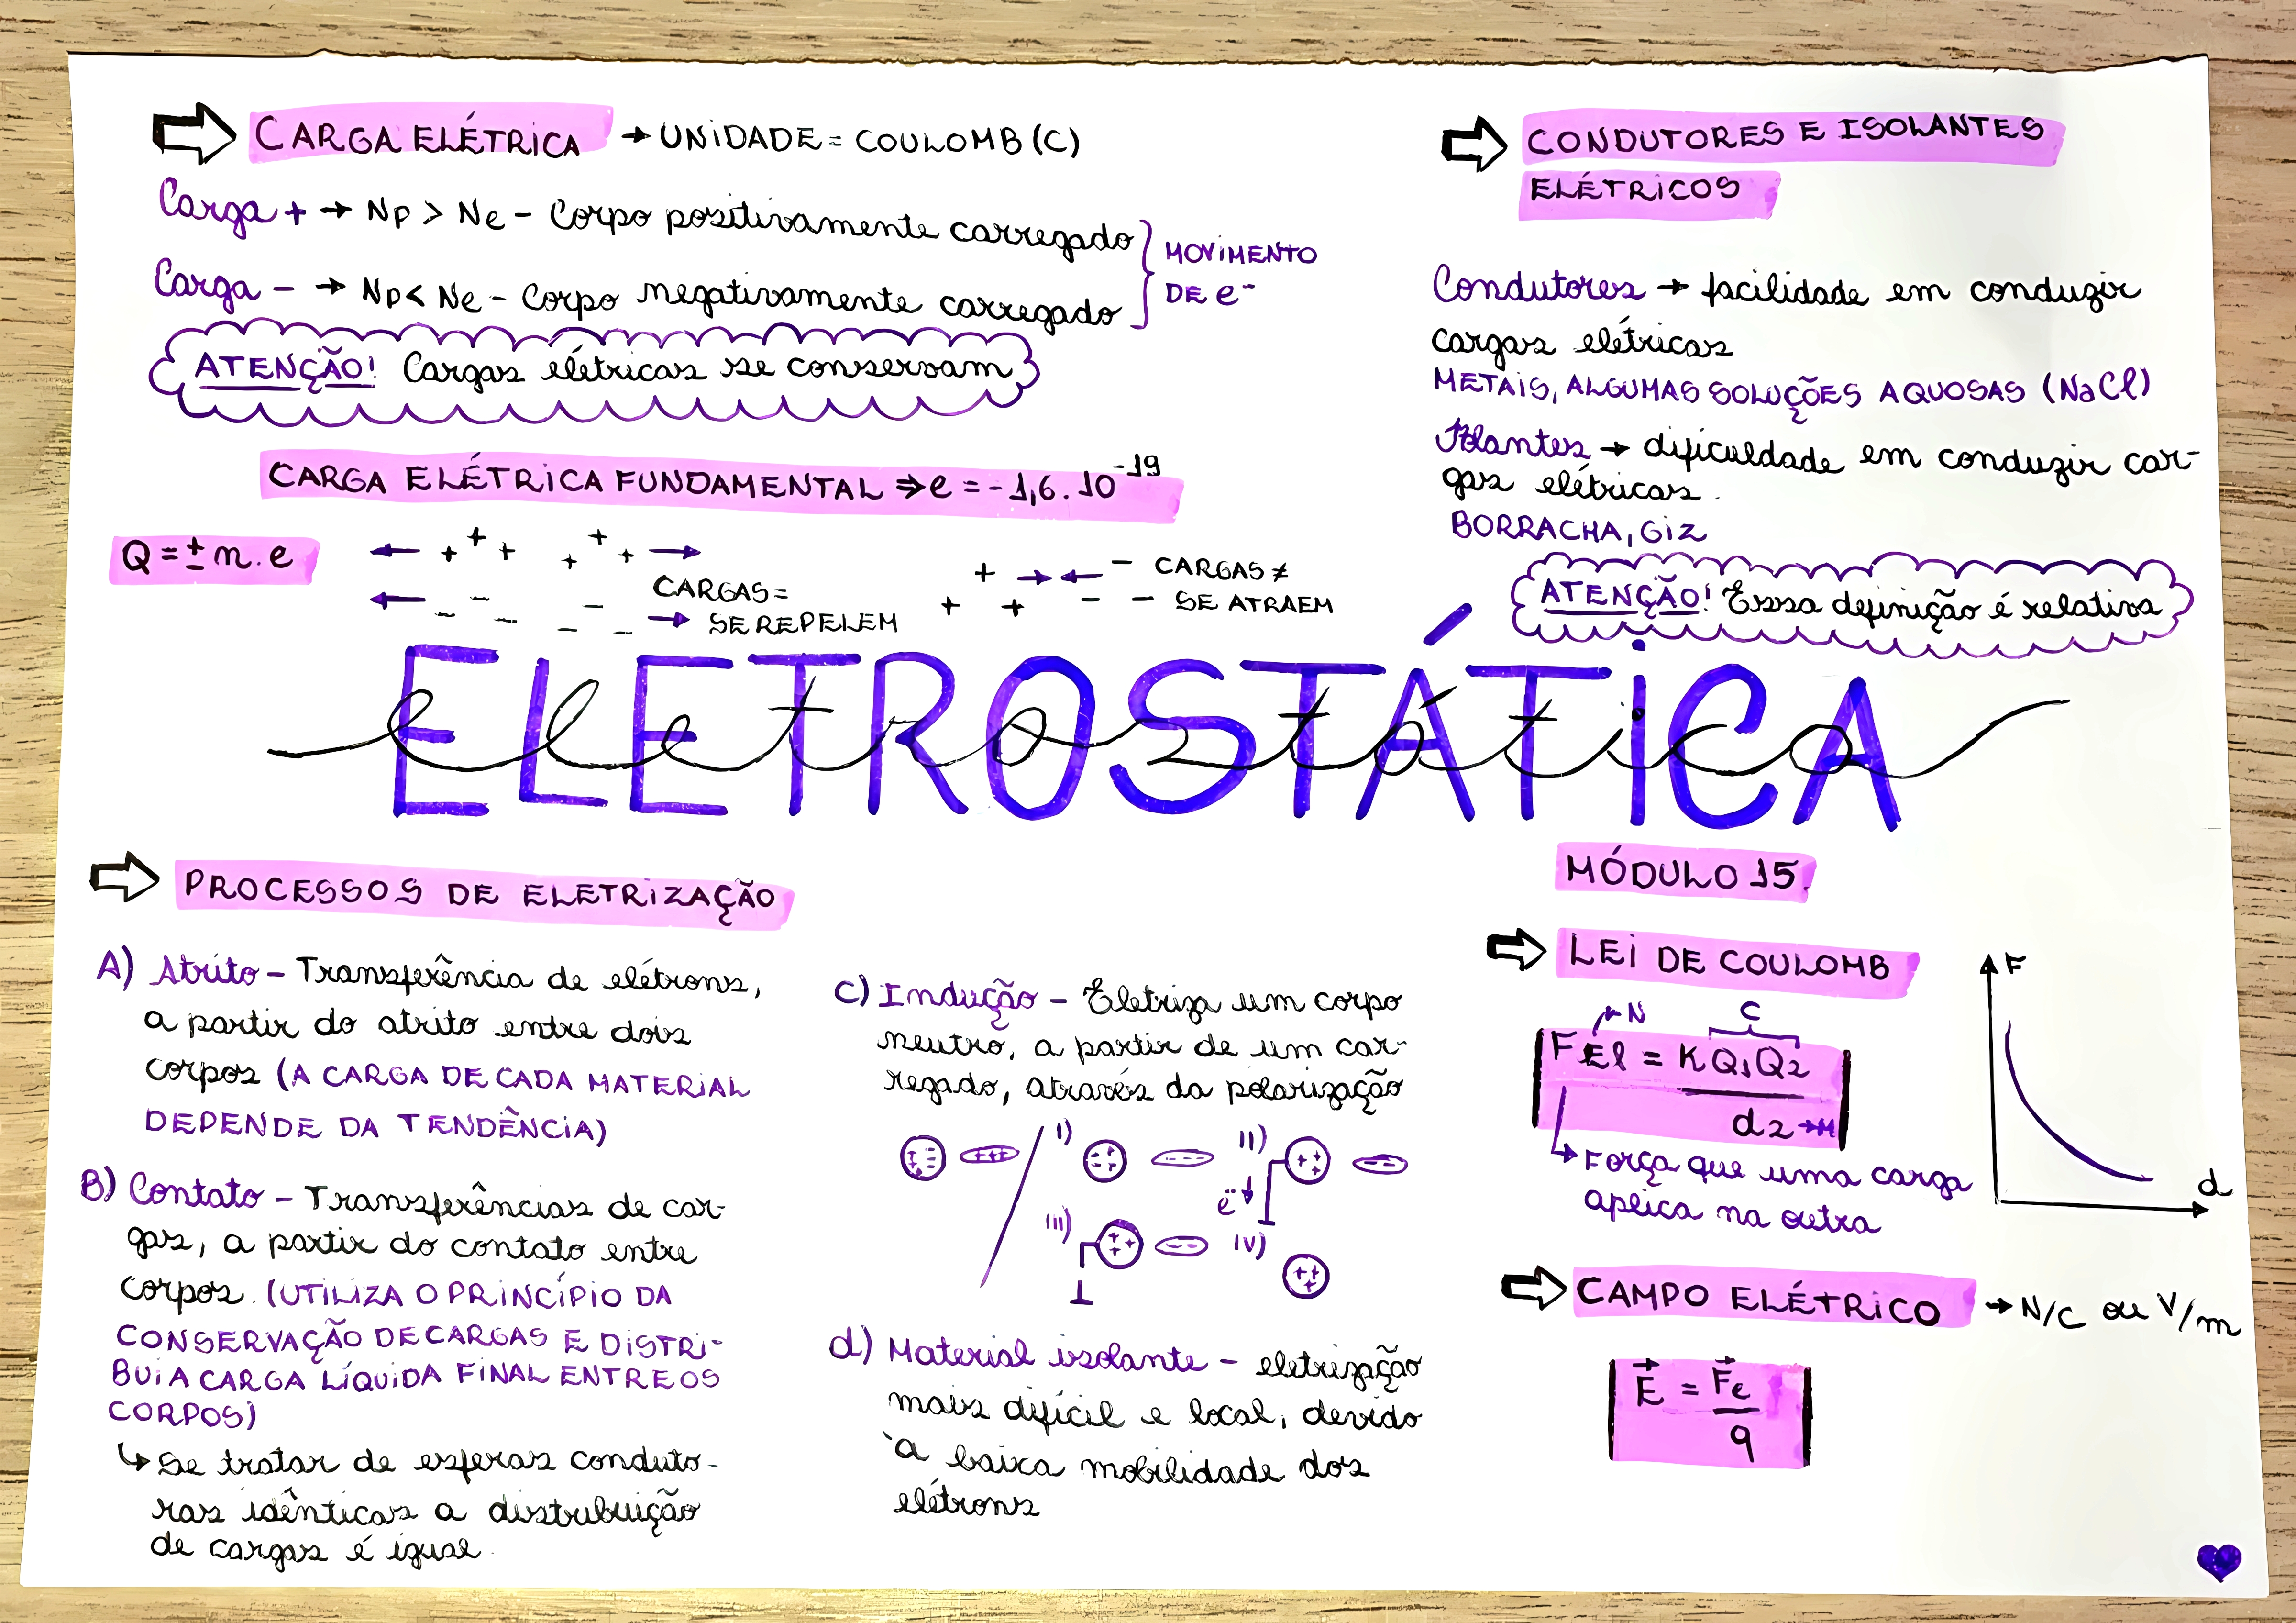 CARGA ELÉTRICA → UNIDADE = COULOMB (C)
Carga + → Np > Ne - Corpo positivamente carregado
Carga - → Np < Ne - Corpo negativamente carregado
MOVIMENTO
DE e⁻
ATENÇÃO! Cargas elétricas se conservam
CARGA ELÉTRICA FUNDAMENTAL ⇒ e = -1,6 . 10⁻¹⁹
Q = ± n . e
+ + + + + +
- - - - - -
CARGAS =
SE REPELEM
+ + + - - -
CARGAS ≠
SE ATRAEM
CONDUTORES E ISOLANTES
ELÉTRICOS
Condutores → facilidade em conduzir
cargas elétricas
METAIS, ALGUMAS SOLUÇÕES AQUOSAS (NaCl)
Isolantes → dificuldade em conduzir car-
gas elétricas.
BORRACHA, GIZ
ATENÇÃO! Essa definição é relativa
ELETROSTÁTICA
eletrostática
PROCESSOS DE ELETRIZAÇÃO
A) Atrito - Transferência de elétrons,
a partir do atrito entre dois
corpos (A CARGA DE CADA MATERIAL
DEPENDE DA TENDÊNCIA)
B) Contato - Transferências de car-
gas, a partir do contato entre
corpos. (UTILIZA O PRINCÍPIO DA
CONSERVAÇÃO DE CARGAS E DISTRI-
BUI A CARGA LÍQUIDA FINAL ENTRE OS
CORPOS)
↳ Se tratar de esferas conduto-
ras idênticas a distribuição
de cargas é igual.
C) Indução - Eletriza um corpo
neutro, a partir de um car-
regado, através da polarização
I) II)
e⁻
III) IV)
d) Material isolante - eletrização
mais difícil e local, devido
à baixa mobilidade dos
elétrons
MÓDULO 15
LEI DE COULOMB
N C
FEl = K Q1 Q2
d2 → M
↳ Força que uma carga
aplica na outra
F
d
CAMPO ELÉTRICO → N/C ou V/m
E = Fe
q